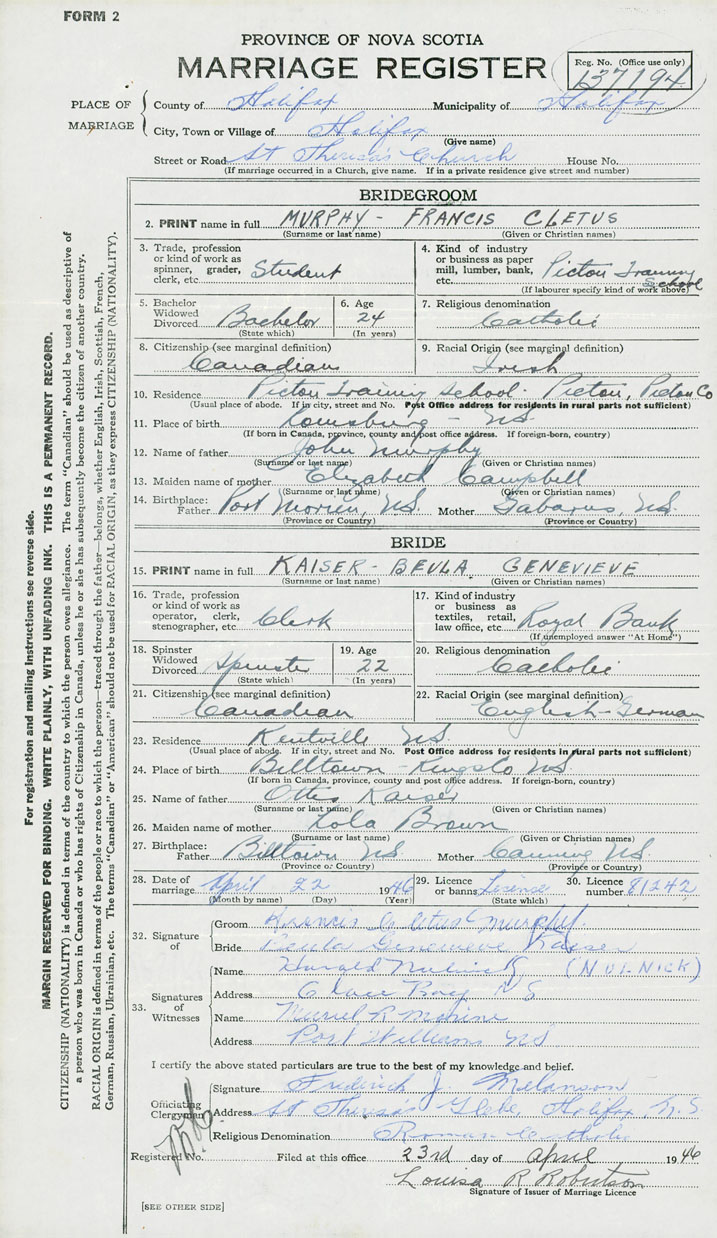 FORM 2
PROVINCE OF NOVA SCOTIA
MARRIAGE REGISTER
Reg. No. (Office use only)
137194
PLACE OF MARRIAGE
County of Halifax Municipality of Halifax
City, Town or Village of Halifax
(Give name)
Street or Road St Theresa's Church House No.
(If marriage occurred in a Church, give name. If in a private residence give street and number)
For registration and mailing instructions see reverse side.
MARGIN RESERVED FOR BINDING. WRITE PLAINLY, WITH UNFADING INK. THIS IS A PERMANENT RECORD.
CITIZENSHIP (NATIONALITY) is defined in terms of the country to which the person owes allegiance. The term "Canadian" should be used as descriptive of
a person who was born in Canada or who has rights of Citizenship in Canada, unless he or she has subsequently become the citizen of another country.
RACIAL ORIGIN is defined in terms of the people or race to which the person—traced through the father—belongs, whether English, Irish, Scottish, French,
German, Russian, Ukrainian, etc. The terms "Canadian" or "American" should not be used for RACIAL ORIGIN, as they express CITIZENSHIP (NATIONALITY).
BRIDEGROOM
2. PRINT name in full MURPHY - FRANCIS CLETUS
(Surname or last name) (Given or Christian names)
3. Trade, profession or kind of work as spinner, grader, clerk, etc. Student
4. Kind of industry or business as paper mill, lumber, bank, etc. Picton Training School
(If labourer specify kind of work above)
5. Bachelor Widowed Divorced Bachelor
(State which)
6. Age 24
(In years)
7. Religious denomination
Catholic
8. Citizenship (see marginal definition)
Canadian
9. Racial Origin (see marginal definition)
Irish
10. Residence Picton Training School. Picton, Picton Co
(Usual place of abode. If in city, street and No. Post Office address for residents in rural parts not sufficient)
11. Place of birth Louisburg - NS
(If born in Canada, province, county and post office address. If foreign-born, country)
12. Name of father John Murphy
(Surname or last name) (Given or Christian names)
13. Maiden name of mother Elizabeth Campbell
(Surname or last name) (Given or Christian names)
14. Birthplace: Father Port Morien, NS. Mother Gabarus, NS.
(Province or Country) (Province or Country)
BRIDE
15. PRINT name in full KAISER - BEULA GENEVIEVE
(Surname or last name) (Given or Christian names)
16. Trade, profession or kind of work as operator, clerk, stenographer, etc. Clerk
17. Kind of industry or business as textiles, retail, law office, etc. Royal Bank
(If unemployed answer "At Home")
18. Spinster Widowed Divorced Spinster
(State which)
19. Age 22
(In years)
20. Religious denomination
Catholic
21. Citizenship (see marginal definition)
Canadian
22. Racial Origin (see marginal definition)
English-German
23. Residence Kentville NS.
(Usual place of abode. If in city, street and No. Post Office address for residents in rural parts not sufficient)
24. Place of birth Billtown - Kings Co NS.
(If born in Canada, province, county and post office address. If foreign-born, country)
25. Name of father Ottis Kaiser
(Surname or last name) (Given or Christian names)
26. Maiden name of mother Lola Brown
(Surname or last name) (Given or Christian names)
27. Birthplace: Father Billtown NS Mother Canning NS.
(Province or Country) (Province or Country)
28. Date of marriage April 22 1946
(Month by name) (Day) (Year)
29. Licence or banns License
(State which)
30. Licence number 81242
32. Signature of
Groom Francis Cletus Murphy.
Bride Beula Genevieve Kaiser
33. Signatures of Witnesses
Name Harold (NURNICK)
Address Glace Bay NS
Name Muriel R
Address Port Williams NS
I certify the above stated particulars are true to the best of my knowledge and belief.
Officiating Clergyman
Signature Frederick J. Melanson
Address St Theresa's Glebe, Halifax N.S
Religious Denomination Roman Catholic
Registered No. Filed at this office 23rd day of April 1946
Louisa R Robertson
Signature of Issuer of Marriage Licence
[SEE OTHER SIDE]